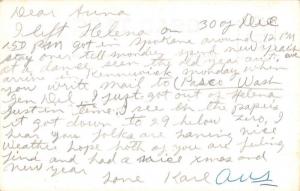 Dear Anna
I left Helena on 30 of Dec
150 P.M got in Spokane around 12 P.M
stay over till monday spend new years
at a dance seen the old year out, are
arrive in Kennwick monday when
you write mail to (Pasco Wash
Gen Del) I just got out of Helena
Just in time, I see in the papers
it got down to 29 below zero, I
hear you folks are having nice
Weather hope both of you are feeling
find and had a nice xmas and
new year
Love Karl ans